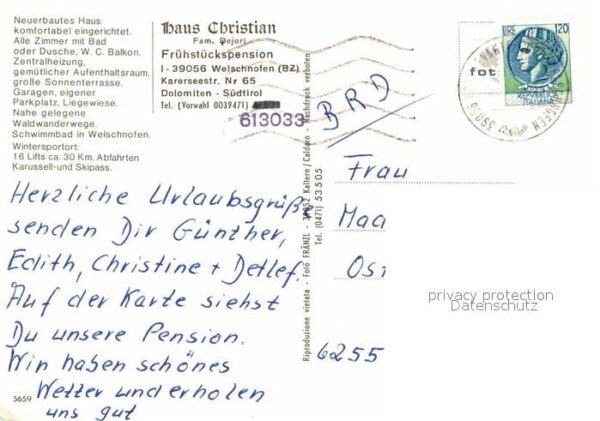 Neuerbautes Haus
komfortabel eingerichtet.
Alle Zimmer mit Bad
oder Dusche, W. C. Balkon.
Zentralheizung,
gemütlicher Aufenthaltsraum,
große Sonnenterrasse.
Garagen, eigener
Parkplatz, Liegewiese.
Nahe gelegene
Waldwanderwege.
Schwimmbad in Welschnofen.
Wintersportort:
16 Lifts ca. 30 Km. Abfahrten
Karussell-und Skipass.
Haus Christian
Fam. Dejori
Frühstückspension
I - 39056 Welschnofen (BZ)
Karerseestr. Nr 65
Dolomiten - Südtirol
Tel. (Vorwahl 0039471)
613033
BRD
LIRE 120
REPUBBLICA
ITALIANA
fot
Herzliche Urlaubsgrüße
senden Dir Günther,
Edith, Christine + Detlef.
Auf der Karte siehst
Du unsere Pension.
Wir haben schönes
Wetter und erholen
uns gut
5659
Riproduzione vietata - Foto FRÄNZL - 39052 Kaltern / Caldaro - Nachdruck verboten
Tel. (0471) 53505
Frau
Maa
Osi
6255
privacy protection
Datenschutz